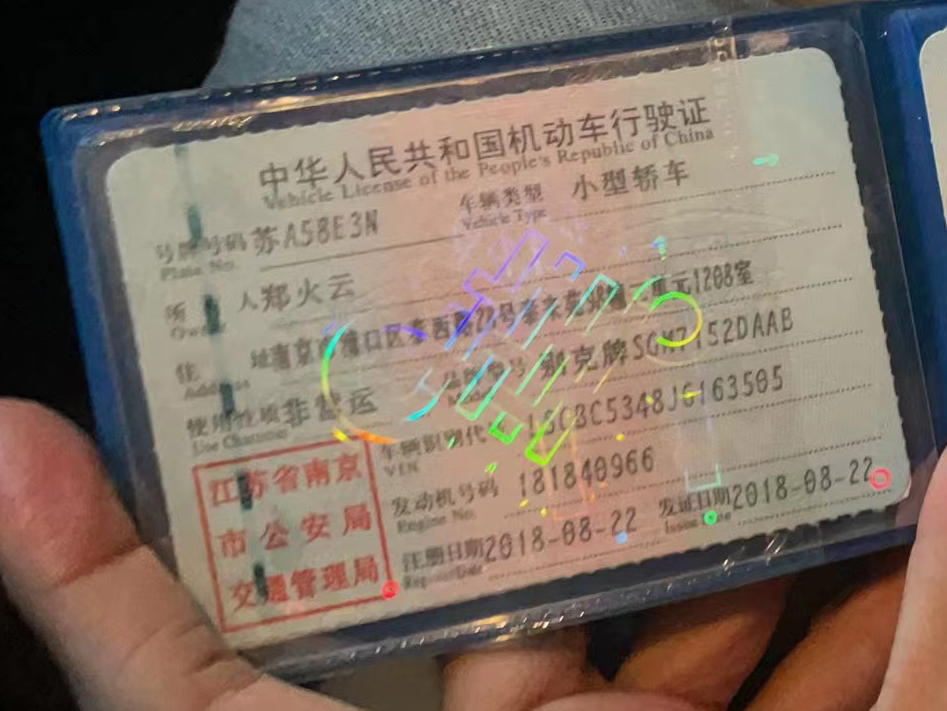 中华人民共和国机动车行驶证
Vehicle License of the People's Republic of China
号牌号码 苏A58E3N 车辆类型 小型轿车
Plate No. Vehicle Type
所 人 郑火云
Owner
住 址 南京市浦口区 1208室
Address
使用性质 非营运 品牌型号 别克牌SGM7152DAAB
Use Character
车辆识别代 LSGBC5348JG163505
VIN
发动机号码 181840966
Engine No.
注册日期 2018-08-22 发证日期 2018-08-22
Register Date Issue Date
江苏省南京
市公安局
交通管理局